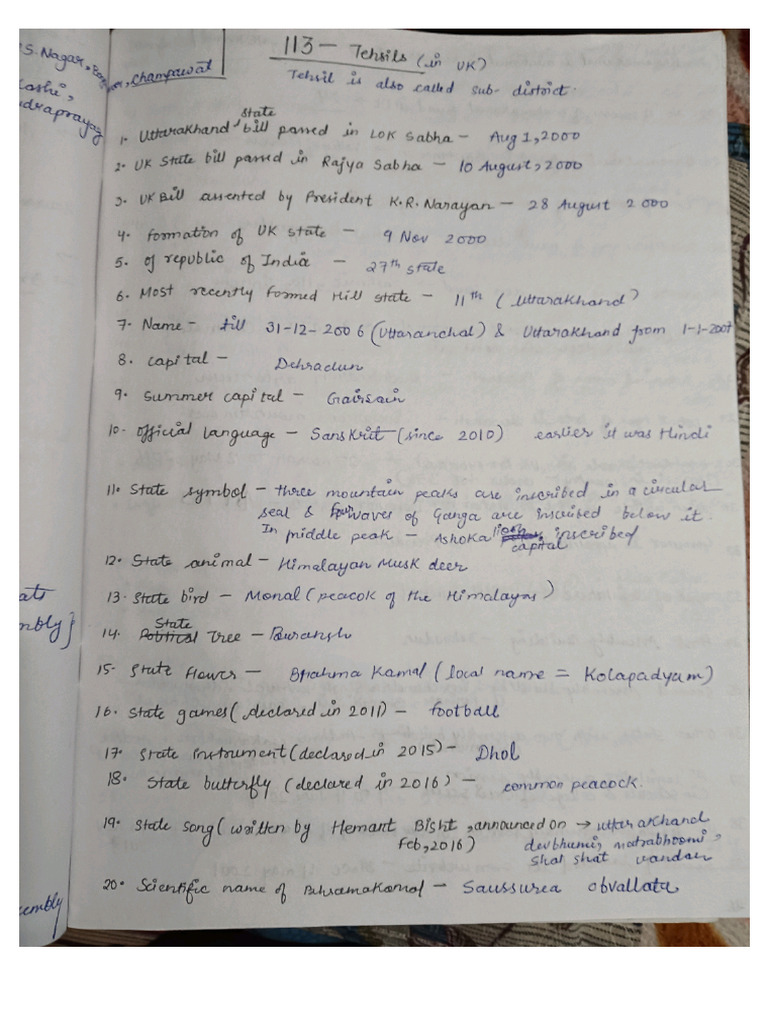 S. Nagar,
Champawat
Kashi,
udraprayag
113 - Tehsils (in UK)
Tehsil is also called sub-district.
1. Uttarakhand state bill passed in Lok Sabha - Aug 1, 2000
2. UK State bill passed in Rajya Sabha - 10 August, 2000
3. UK Bill assented by President K.R. Narayan - 28 August 2000
4. formation of UK state - 9 Nov 2000
5. of republic of India - 27th state
6. Most recently formed Hill state - 11th (Uttarakhand)
7. Name - till 31-12-2006 (Uttaranchal) & Uttarakhand from 1-1-2007
8. capital - Dehradun
9. Summer capital - Gairsain
10. official language - Sanskrit (since 2010) earlier it was Hindi
11. State symbol - three mountain peaks are inscribed in a circular
seal & four waves of Ganga are inscribed below it.
In middle peak - Ashoka lion capital inscribed
12. State animal - Himalayan Musk deer
13. State bird - Monal (peacok of the Himalayas)
14. State Tree - Buransh
15. State flower - Brahma Kamal (local name = Kolapadyam)
16. State games (declared in 2011) - football
17. State instrument (declared in 2015) - Dhol
18. State butterfly (declared in 2016) - common peacock.
19. State song (written by Hemant Bisht, announced on → uttarakhand
Feb, 2016) devbhumi, matrabhoomi,
shat shat vandan
20. Scientific name of - Saussurea obvallata
ats
mbly}
embly